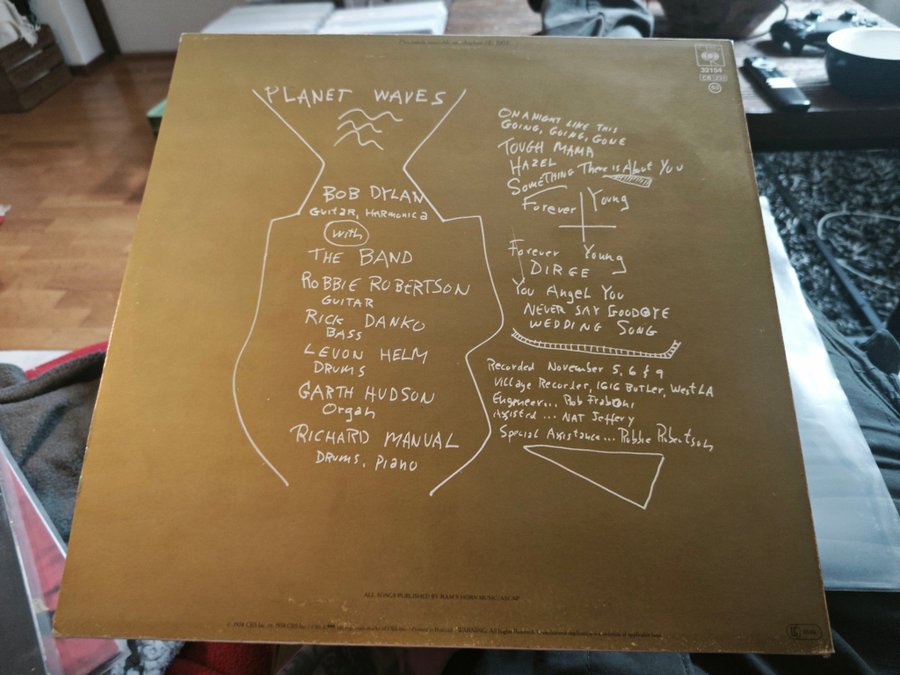 PLANET WAVES
BOB DYLAN
GUITAR, HARMONICA
with
THE BAND
ROBBIE ROBERTSON
GUITAR
RICK DANKO
BASS
LEVON HELM
DRUMS
GARTH HUDSON
Organ
RICHARD MANUAL
DRUMS, piano
ON A NIGHT LIKE THIS
GOING, GOING, GONE
TOUGH MAMA
HAZEL
SOMETHING There is About You
Forever Young
Forever Young
DIRGE
You Angel You
NEVER SAY GOODBYE
WEDDING SONG
Recorded November 5, 6 & 9
Village Recorder, 1616 Butler, West LA
Engeneer... Rob Fraboni
Assisted ... NAT Jeffery
Special Assistance... Robbie Robertson
CBS
32154
ALL SONGS PUBLISHED BY RAM'S HORN MUSIC/ASCAP
WARNING: All Rights Reserved. Unauthorized duplication is a violation of applicable laws